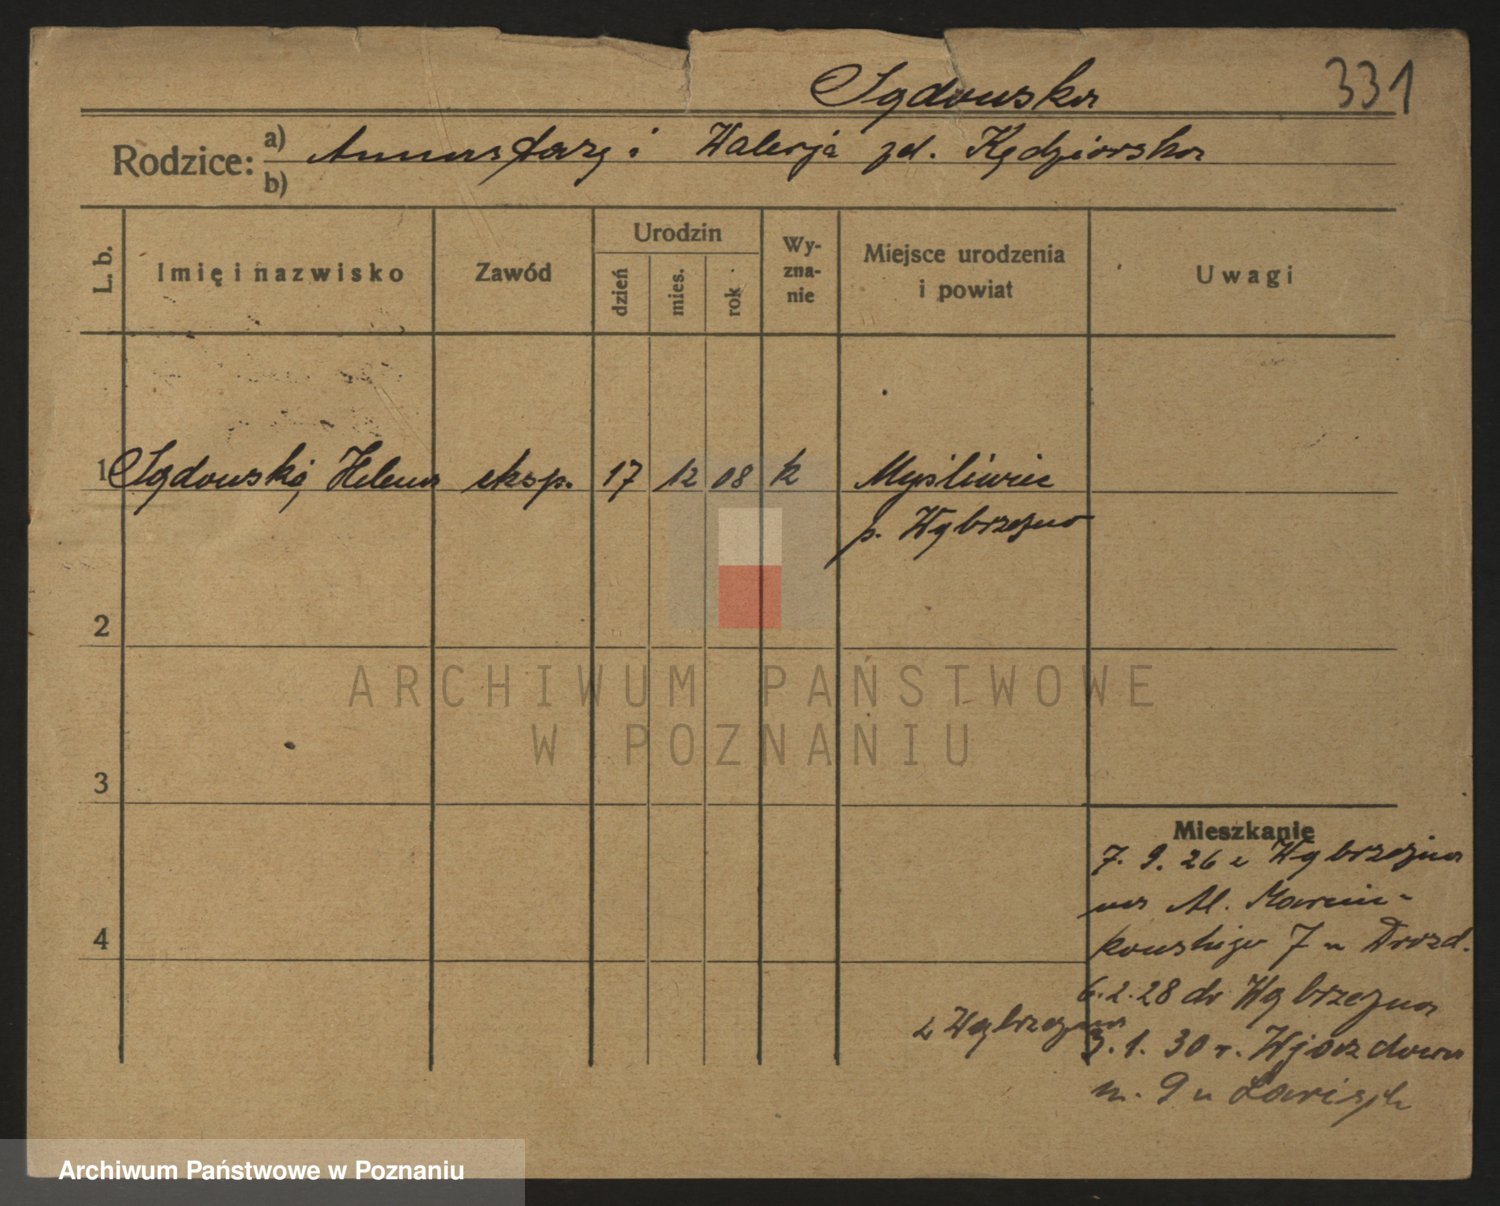 Sądowska
331
Rodzice: a) Anastazy i Walerja zd. Kędziorska
b)
L. b.
Imię i nazwisko
Zawód
Urodzin
dzień
mies.
rok
Wy-
zna-
nie
Miejsce urodzenia
i powiat
Uwagi
1 Sądowska, Helena eksp. 17 12 08 k Myśliwiec
p. Wąbrzeźno
2
ARCHIWUM PAŃSTWOWE
W POZNANIU
3
Mieszkanie
7. 9. 26 z Wąbrzeźna
na Al. Marcin-
kowskiego 7 u Drozd.
4
6. 2. 28 do Wąbrzeźna
z Wąbrzeźna
3. 1. 30 r. Wjazdowa
m. 9 u
Archiwum Państwowe w Poznaniu